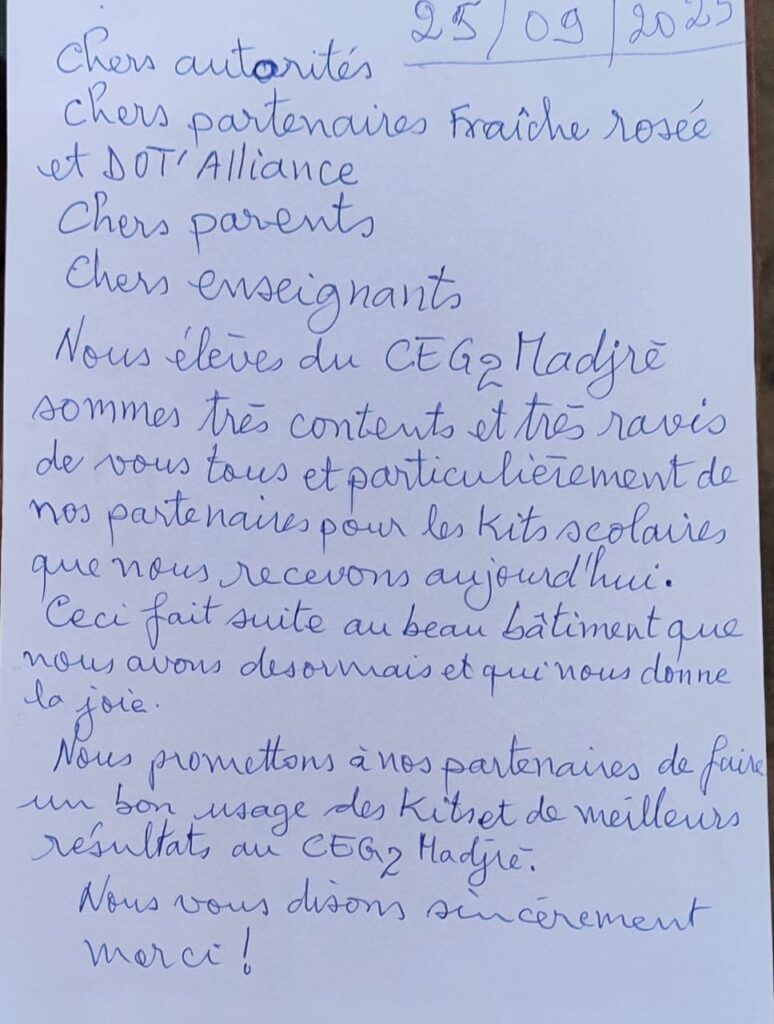 25/09/2025
Chers autorités
chers partenaires Fraîche rosée
et DOT'Alliance
Chers parents
Chers enseignants
Nous élèves du CEG2 Madjrè
sommes très contents et très ravis
de vous tous et particulièrement de
nos partenaires pour les Kits scolaires
que nous recevons aujourd'hui.
Ceci fait suite au beau bâtiment que
nous avons desormais et qui nous donne
la joie.
Nous promettons à nos partenaires de faire
un bon usage des Kits et de meilleurs
résultats au CEG2 Madjrè.
Nous vous disons sincèrement
merci !